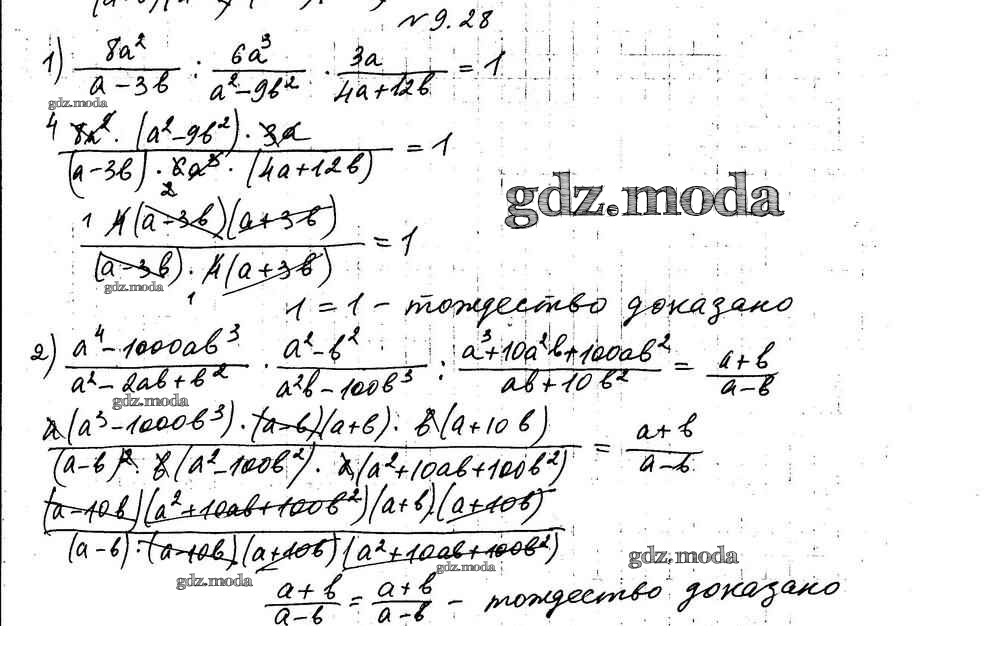 №9.28
1) 8a²/(a-3b) : 6a³/(a²-9b²) · 3a/(4a+12b) = 1
gdz.moda
4 8a² · (a²-9b²) · 3a / (a-3b) · 6a³ · (4a+12b) = 1
2
gdz.moda
1 4(a-3b)(a+3b) / (a-3b) · 4(a+3b) = 1
gdz.moda
1
1 = 1 - тождество доказано
2) (a⁴-1000ab³)/(a²-2ab+b²) · (a²-b²)/(a²b-100b³) : (a³+10a²b+100ab²)/(ab+10b²) = (a+b)/(a-b)
gdz.moda
a(a³-1000b³) · (a-b)(a+b) · b(a+10b) / (a-b)² · b(a²-100b²) · a(a²+10ab+100b²) = (a+b)/(a-b)
(a-10b)(a²+10ab+100b²)(a+b)·(a+10b) / (a-b)·(a-10b)(a+10b)(a²+10ab+100b²)
gdz.moda
gdz.moda
(a+b)/(a-b) = (a+b)/(a-b) - тождество доказано